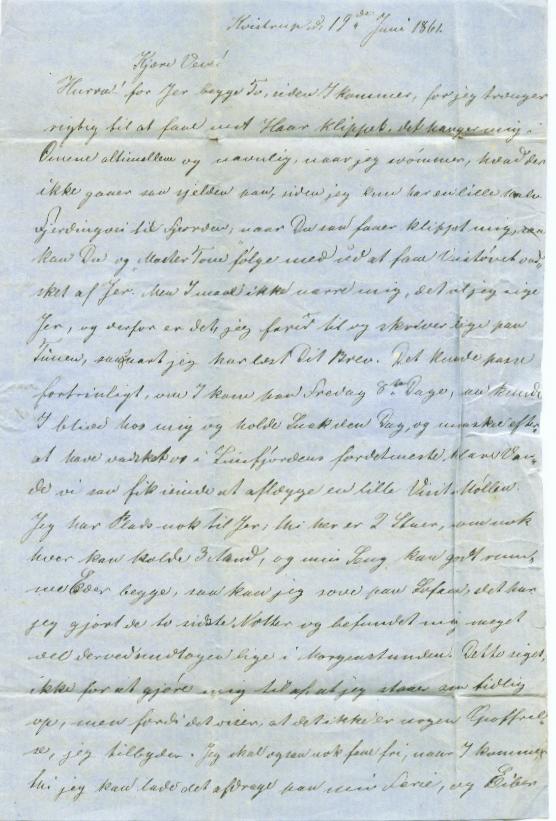 Kvistrup d. 19de Juni 1861.
Kjære Ven!
Hurra! for Jer begge To, siden I kommer, for jeg trænger
rigtig til at faae mit Haar klippet, det hænger mig i
Øinene altimellem og navnlig, naar jeg svømmer, hvad der
ikke gaaer saa sjelden paa, siden jeg kun har en lille halv
Fjerdingvei til Fjorden; naar Du saa faaer klippet mig, saa
kan Du og Mester Tom følge med ud at faae Universitetsstøvet vad-
sket af Jer. Men I maae ikke narre mig, det vil jeg sige
Jer, og derfor er det, jeg farer til og skriver lige paa
Timen, saasnart jeg har læst Dit Brev. Det kunde passe
fortrinligt, om I kom paa Fredag 8te Dage, saa kunde
I blive hos mig og holde Sankthans Dag, og maaskee efter
at have vadsket os i Limfjordens fordetmeste klare Van-
de vi saa fik isinde at aflægge en lille Visit Møllen.
Jeg har Plads nok til Jer, thi her er 2 Stuer, som nok
hver kan holde 3 Mand, og min Seng kan godt rum-
me Eder begge, saa kan jeg sove paa Sofaen, det har
jeg gjort de to sidste Nætter og befundet mig meget
vel derved undtagen lige i Morgenstunden. Dette siges
ikke for at gjøre mig til af, at jeg staaer saa tidlig
op, men fordi det viser, at det ikke er nogen Opoffrel-
se, jeg tilbyder. Jeg skal ogsaa nok faae fri, naar I kommer
thi jeg kan lade det afdrage paa min Ferie, og Eiber